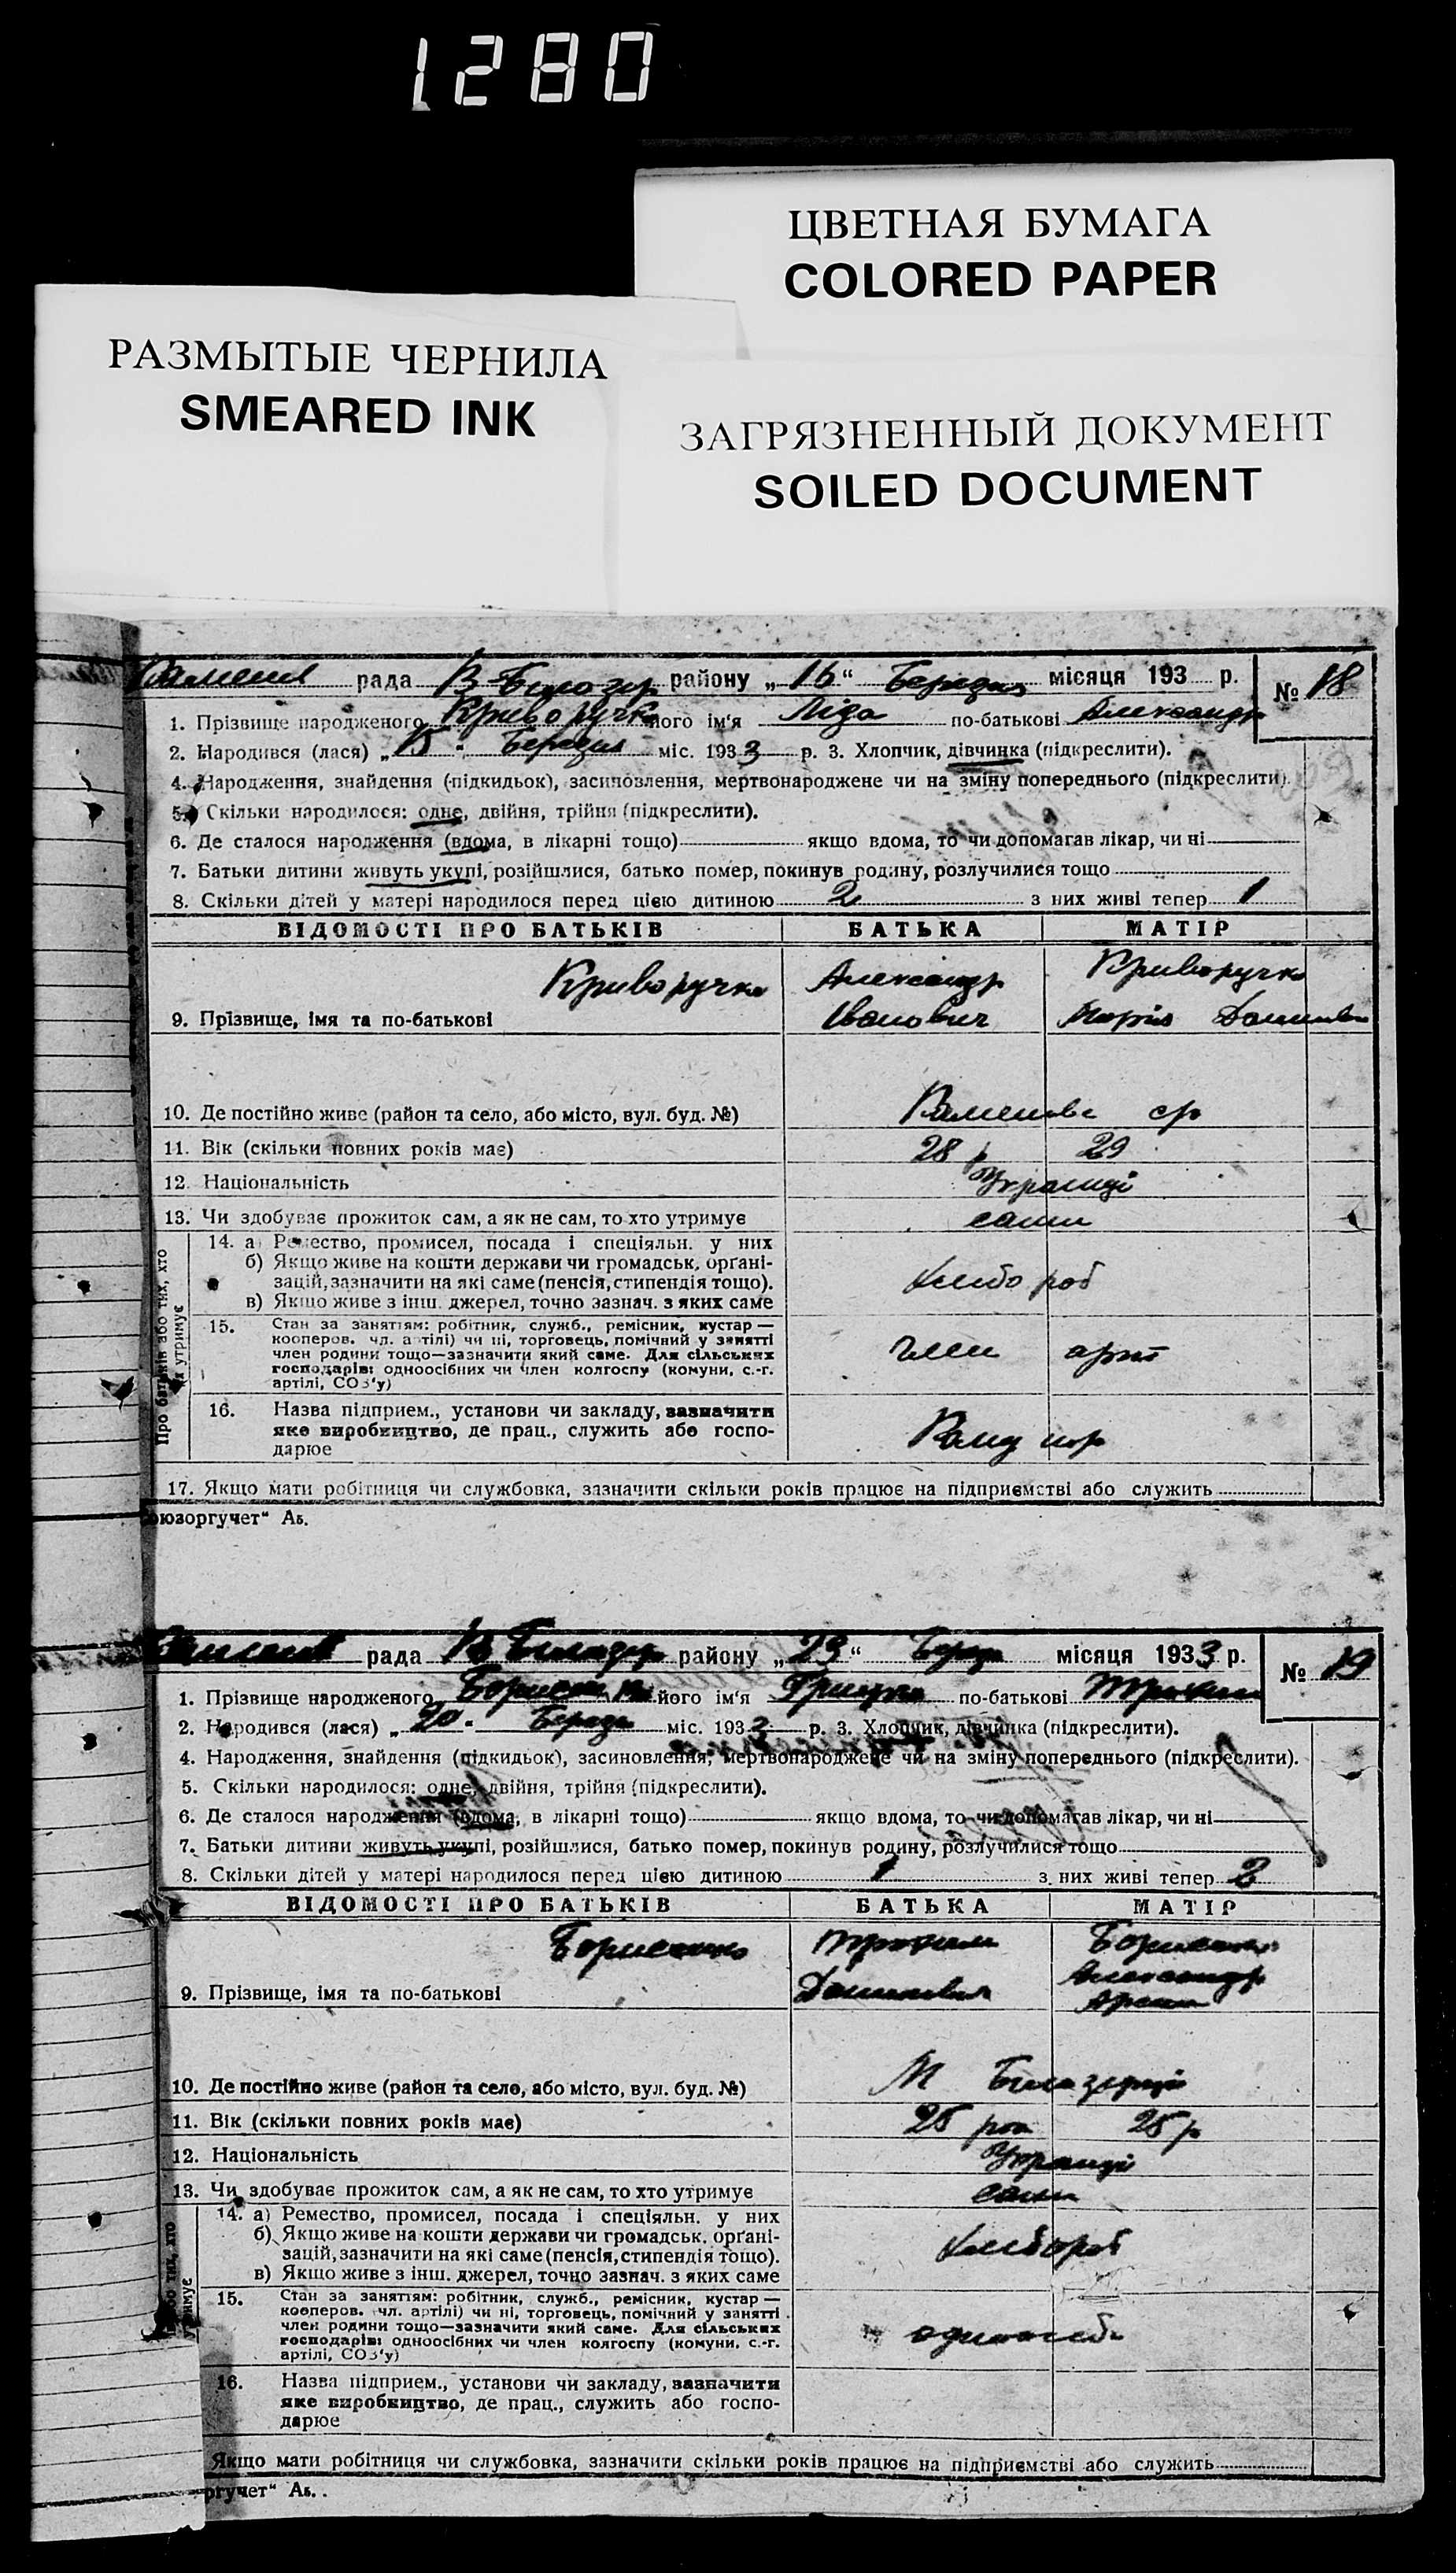 1280
ЦВЕТНАЯ БУМАГА
COLORED PAPER
РАЗМЫТЫЕ ЧЕРНИЛА
SMEARED INK
ЗАГРЯЗНЕННЫЙ ДОКУМЕНТ
SOILED DOCUMENT
рада району „16“ Березня місяця 193 р. № 18
1. Прізвище народженого Криворучко його ім'я Ліза по-батькові Александр
2. Народився (лася) „15 “ Березня міс. 1933 р. 3. Хлопчик, дівчинка (підкреслити).
4. Народження, знайдення (підкидьок), засиновлення, мертвонароджене чи на зміну попереднього (підкреслити).
5. Скільки народилося: одне, двійня, трійня (підкреслити).
6. Де сталося народження (вдома, в лікарні тощо) якщо вдома, то чи допомагав лікар, чи ні
7. Батьки дитини живуть укупі, розійшлися, батько помер, покинув родину, розлучилися тощо
8. Скільки дітей у матері народилося перед цією дитиною 2 з них живі тепер 1
ВІДОМОСТІ ПРО БАТЬКІВ БАТЬКА МАТІР
Криворучко Александр Криворучко
9. Прізвище, імя та по-батькові Іванович Марія
10. Де постійно живе (район та село, або місто, вул. буд. №)
11. Вік (скільки повних років має) 28 р 29
12. Національність Україці
13. Чи здобуває прожиток сам, а як не сам, то хто утримує сами
Про батьків або тих, хто
їх утримує
14. а) Ремество, промисел, посада і спеціяльн. у них
б) Якщо живе на кошти держави чи громадськ. орґані-
зацій, зазначити на які саме (пенсія, стипендія тощо). хлібороб
в) Якщо живе з інш. джерел, точно зазнач. з яких саме
15. Стан за заняттям: робітник, служб., ремісник, кустар —
кооперов. чл. артілі) чи ні, торговець, помічний у занятті
член родини тощо—зазначити який саме. Для сільських член арт
господарів: одноосібних чи член колгоспу (комуни, с.-г.
артілі, СОЗ'у)
16. Назва підприєм., установи чи закладу, зазначити
яке виробництво, де прац., служить або госпо-
дарює
17. Якщо мати робітниця чи службовка, зазначити скільки років працює на підприємстві або служить
оюзоргучет“ Аь.
рада району „23“ місяця 1933 р. № 19
1. Прізвище народженого його ім'я Грицко по-батькові
2. Народився (лася) „20 “ міс. 1933 р. 3. Хлопчик, дівчинка (підкреслити).
4. Народження, знайдення (підкидьок), засиновлення, мертвонароджене чи на зміну попереднього (підкреслити).
5. Скільки народилося: одне, двійня, трійня (підкреслити).
6. Де сталося народження (вдома, в лікарні тощо) якщо вдома, то чи допомагав лікар, чи ні
7. Батьки дитини живуть укупі, розійшлися, батько помер, покинув родину, розлучилися тощо
8. Скільки дітей у матері народилося перед цією дитиною 1 з них живі тепер 2
ВІДОМОСТІ ПРО БАТЬКІВ БАТЬКА МАТІР
Борисенко Трохим Борисенко
Александр
9. Прізвище, імя та по-батькові
10. Де постійно живе (район та село, або місто, вул. буд. №) М
11. Вік (скільки повних років має) 25 25 р
12. Національність Україці
13. Чи здобуває прожиток сам, а як не сам, то хто утримує сами
14. а) Ремество, промисел, посада і спеціяльн. у них
б) Якщо живе на кошти держави чи громадськ. орґані- хлібороб
зацій, зазначити на які саме (пенсія, стипендія тощо).
в) Якщо живе з інш. джерел, точно зазнач. з яких саме
15. Стан за заняттям: робітник, служб., ремісник, кустар —
кооперов. чл. артілі) чи ні, торговець, помічний у занятті
член родини тощо—зазначити який саме. Для сільських
господарів: одноосібних чи член колгоспу (комуни, с.-г.
артілі, СОЗ'у)
16. Назва підприєм., установи чи закладу, зазначити
яке виробництво, де прац., служить або госпо-
дарює
Якщо мати робітниця чи службовка, зазначити скільки років працює на підприємстві або служить
ргучет“ Аь.